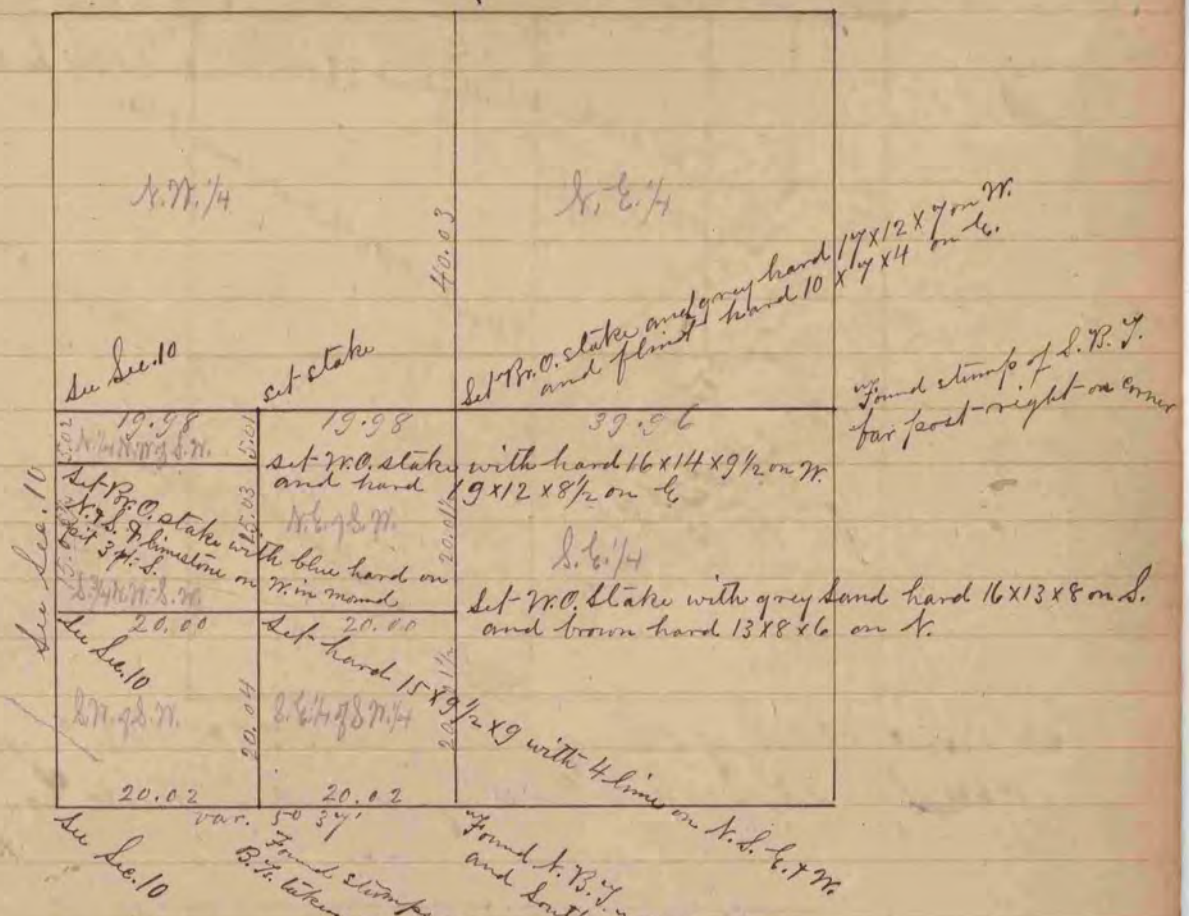 N.W. 1/4
N.E. 1/4
40.03
Set Br. O. stake and grey hard 17x12x7 on W.
and flint hard 10x7x4 on E.
See Sec. 10
set stake
Found stump of S. B. T.
for post-right on corner
19.98
19.98
39.96
5.02
N. 1/4 N.W. of S.W.
5.01
set W.O. stake with hard 16x14x9 1/2 on W.
and hard 19x12x8 1/2 on E
See Sec. 10
Set Br. O. stake with blue hard on
N. & S. & limestone on W. in mound
pit 3 ft. S.
15.03
N.E. of S.W.
20.01 1/2
S.E. 1/4
S. 3/4 N.W. S.W.
Set W.O. Stake with grey Sand hard 16x13x8 on S.
and brown hard 13x8x6 on N.
20.00
20.00
See Sec. 10
Set hard 15x9 1/2x9 with 4 lime on N. S. E. & W.
S.W. of S.W.
20.04
S.E. 1/4 of S.W. 1/4
20.01 1/2
20.02
20.02
var. 5° 37'
See Sec. 10
Found stump
B. T. taken
Found N. B. T.
and South